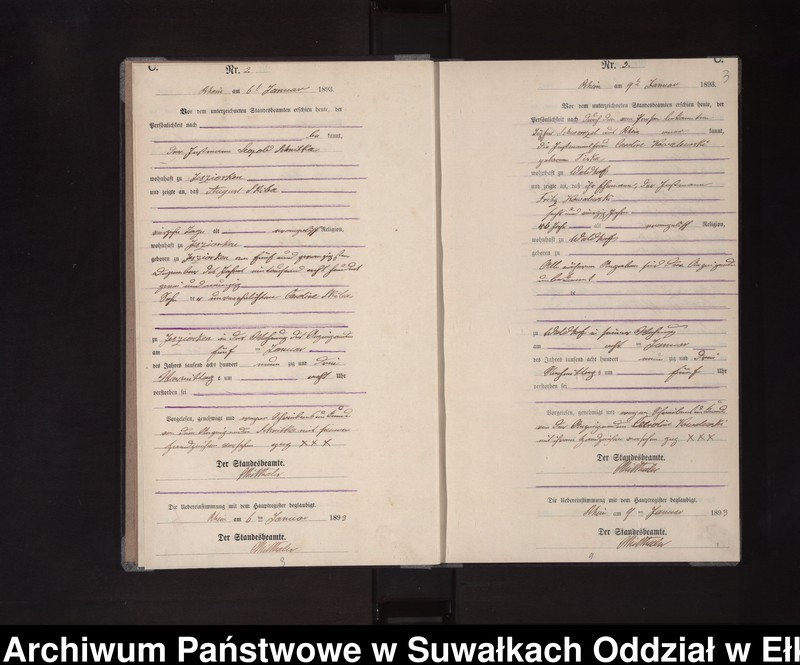 C.
Nr. 2
Rhein am 6ten Januar 1893.
Vor dem unterzeichneten Standesbeamten erschien heute, der
Persönlichkeit nach
be kannt,
der Instmann Leopold
wohnhaft zu Jesziorken
und zeigte an, daß August Skiba
alt evangelischer Religion,
wohnhaft zu Jesziorken
geboren zu Jesziorken am fünf und zwanzigsten
Dezember des Jahres eintausend acht hundert
zwei und neunzig
Sohn der unverehelichten Caroline Skiba
zu Jesziorken in der Wohnung des Anzeigenden
am fünften Januar
des Jahres tausend acht hundert neun zig und drei
Vormittags um acht Uhr
verstorben sei
Vorgelesen, genehmigt und wegen Schreibensunkunde
von dem Anzeigenden mit seinem
Handzeichen versehen gez. XXX
Der Standesbeamte.
Die Uebereinstimmung mit dem Hauptregister beglaubigt.
Rhein am 6ten Januar 1893
Der Standesbeamte.
C.
3
Nr. 3.
Rhein am 9ten Januar 1893.
Vor dem unterzeichneten Standesbeamten erschien heute, der
Persönlichkeit nach durch den
aus Rhein kannt,
die Instmannsfrau Caroline Kowalewski
geborene
wohnhaft zu Waldhof
und zeigte an, daß ihr Ehemann, der Instmann
Fritz Kowalewski
46 Jahre evangelischer Religion,
wohnhaft zu Waldhof
geboren zu
Alle näheren Angaben sind der Anzeigenden
unbekannt
zu Waldhof in seiner Wohnung
am acht ten Januar
des Jahres tausend acht hundert neun zig und drei
Nachmittags um fünf Uhr
verstorben sei
Vorgelesen, genehmigt und wegen Schreibensunkunde
von der Anzeigenden Caroline Kowalewski
mit ihrem Handzeichen versehen gez. XXX
Der Standesbeamte.
Die Uebereinstimmung mit dem Hauptregister beglaubigt.
Rhein am 9ten Januar 1893
Der Standesbeamte.
Archiwum Państwowe w Suwałkach Oddział w Eł